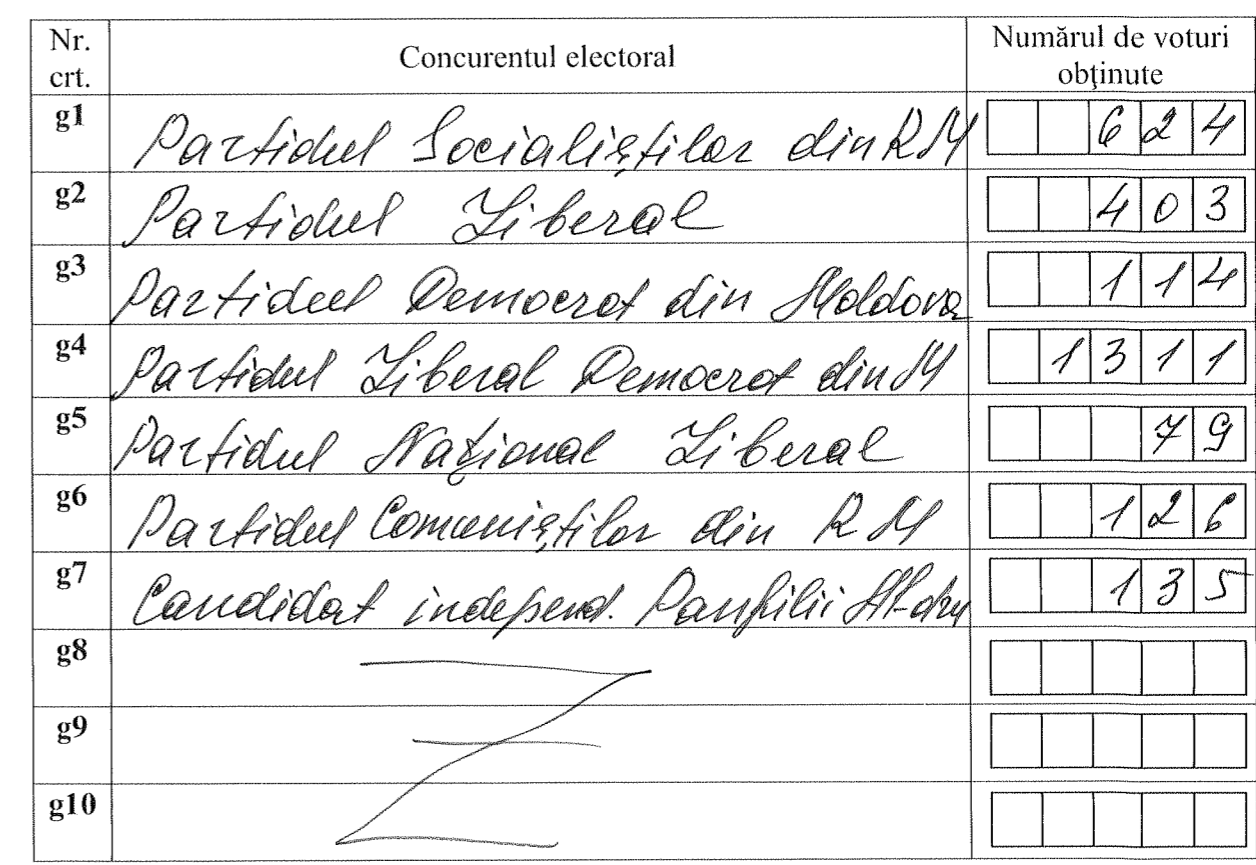 Nr. crt. Concurentul electoral Numărul de voturi obţinute
g1 Partidul Socialiștilor din RM 624
g2 Partidul Liberal 403
g3 Partidul Democrat din Moldova 114
g4 Partidul Liberal Democrat din M 1311
g5 Partidul Național Liberal 79
g6 Partidul Comuniștilor din RM 126
g7 Candidat independ. Panfilii 135
g8
g9
g10